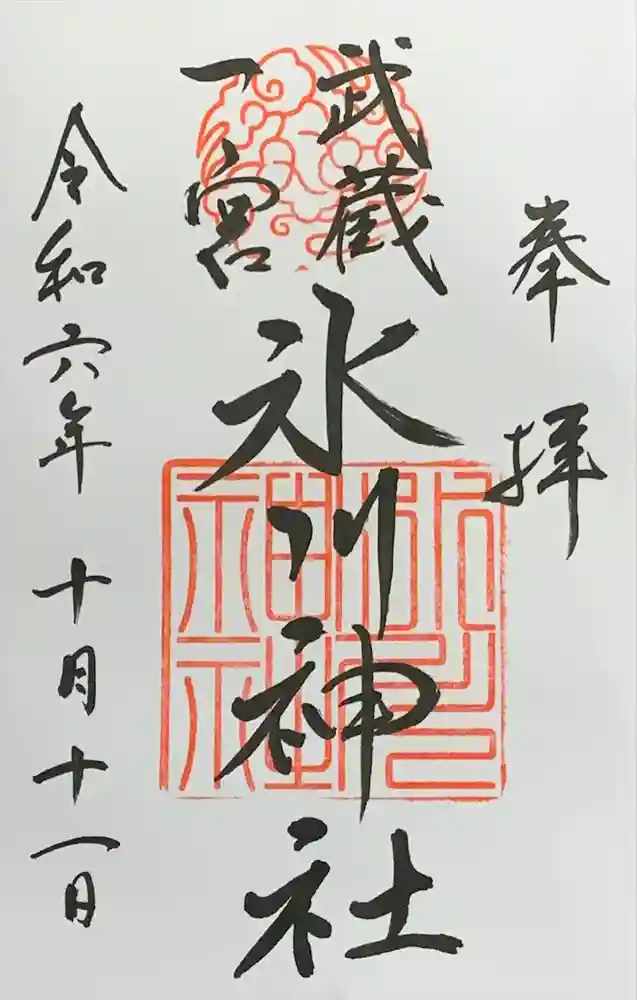 奉拝
武蔵
一宮
氷川神社
氷川神社
令和六年 十月十一日